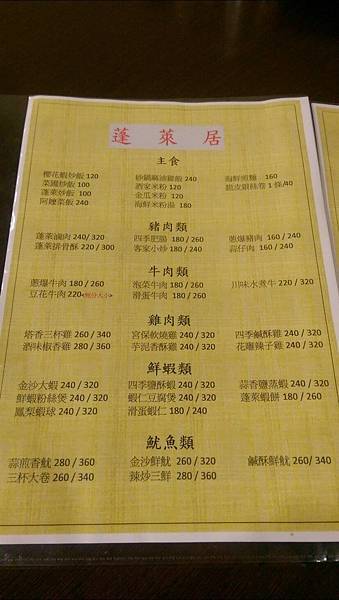 蓬萊居
主食
櫻花蝦炒飯 120 砂鍋麻油雞飯 240 海鮮煎麵 160
菜圃炒飯 100 酒家米粉 120 脆皮銀絲卷 1條/40
蓬萊炒飯 100 金瓜米粉 120
阿嬤菜飯 240 海鮮米粉湯 180
豬肉類
蓬萊滷肉 240/ 320 四季肥腸 180 / 260 蔥爆豬肉 160 / 240
蓬萊排骨酥 220 / 300 客家小炒 180 / 240 蒜仔肉 160 / 240
牛肉類
蔥爆牛肉 180 / 260 泡菜牛肉 180 / 260 川味水煮牛 220 / 320
豆花牛肉 220<無份大小> 滑蛋牛肉 180 / 260
雞肉類
塔香三杯雞 260 / 340 宮保軟燒雞 240 / 320 四季鹹酥雞 240 / 320
酒味椒香雞 280 / 360 芋泥香酥雞 240 / 320 花雕辣子雞 240 / 320
鮮蝦類
金沙大蝦 240 / 320 四季鹽酥蝦 240 / 320 蒜香鹽蒸蝦 240 / 320
鮮蝦粉絲煲 240 / 320 蝦仁豆腐煲 240 / 320 蓬萊蝦餅 180 / 260
鳳梨蝦球 240 / 320 滑蛋蝦仁 180 / 240
魷魚類
蒜煎香魷 280 / 360 金沙鮮魷 260 / 320 鹹酥鮮魷 260/ 340
三杯大卷 260 / 340 辣炒三鮮 280 / 360